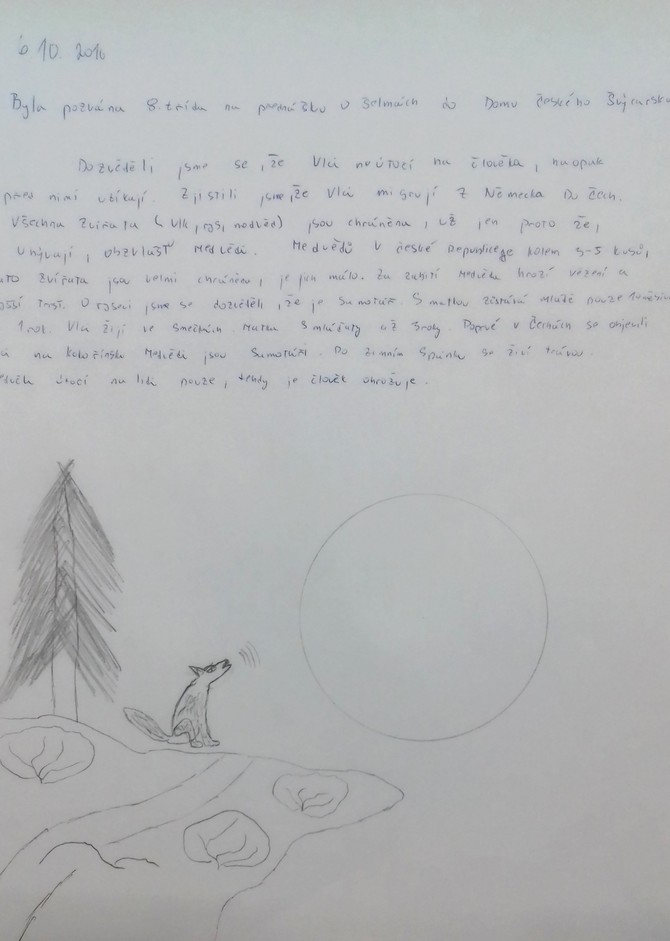 6 10. 2016
Byla pozvána 8. třída na přednášku o šelmách do Domu Českého Švýcarska
Dozvěděli jsme se, že Vlci neútočí na člověka, naopak
před nimi utíkají. Zjistili jsme, že Vlci migrují z Německa Do Čech.
Všechna Zvířata (Vlk, rys, medvěd) jsou chráněna, už jen proto že,
Uhývají, obzvlášť Medvědi. Medvědů V české Republice je kolem 3-5 kusů,
Zvířata jsou velmi chráněna, je jen málo. Za zabití Medvěda hrozí vězení a
trest. O rysovi jsme se dozvěděli, že je Samotář. S matkou zůstává mládě pouze
1 rok. Vlci Žijí ve Smečkách. Matka S mláďaty až 3 roky. Poprvé v Čechách se objevili
na Kokořínsku Medvědi jsou Samotáři. Do zimním Spánku se živí trávou.
útočí na lidi pouze, tehdy je člověk ohrožuje.